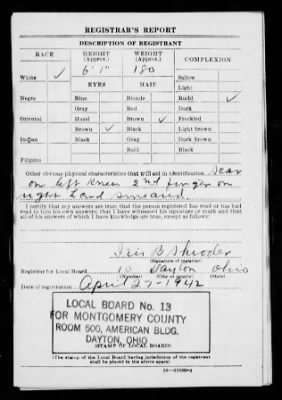 REGISTRAR'S REPORT
DESCRIPTION OF REGISTRANT
RACE HEIGHT (Approx.) WEIGHT (Approx.) COMPLEXION
6' 1" 180
White ✓ Sallow
EYES HAIR Light
Negro Blue Blonde Rudd ✓
Gray Red Dark
Oriental Hazel Brown ✓ Freckled
Brown ✓ Black Light brown
Indian Black Gray Dark brown
Bald Black
Filipino
Other obvious physical characteristics that will aid in identification Scar
on left knee 2nd finger on
right hand
I certify that my answers are true; that the person registered has read or has had
read to him his own answers; that I have witnessed his signature or mark and that
all of his answers of which I have knowledge are true, except as follows:
Iris B. Rhodes
(Signature of registrar)
Registrar for Local Board 10 Dayton Ohio
(Number) (City or county) (State)
Date of registration April 27-1942
LOCAL BOARD No. 13
FOR MONTGOMERY COUNTY
ROOM 500, AMERICAN BLDG.
DAYTON, OHIO
(STAMP OF LOCAL BOARD)
(The stamp of the Local Board having jurisdiction of the registrant
shall be placed in the above space)